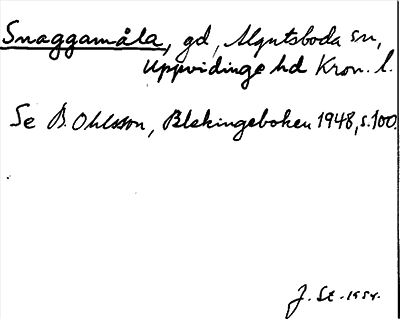 Snaggamåla, gd, Älgutsboda sn,
Uppvidinge hd Kron. l.
Se B. Ohlsson, Blekingeboken 1948, s. 100.
J. St. 1954.